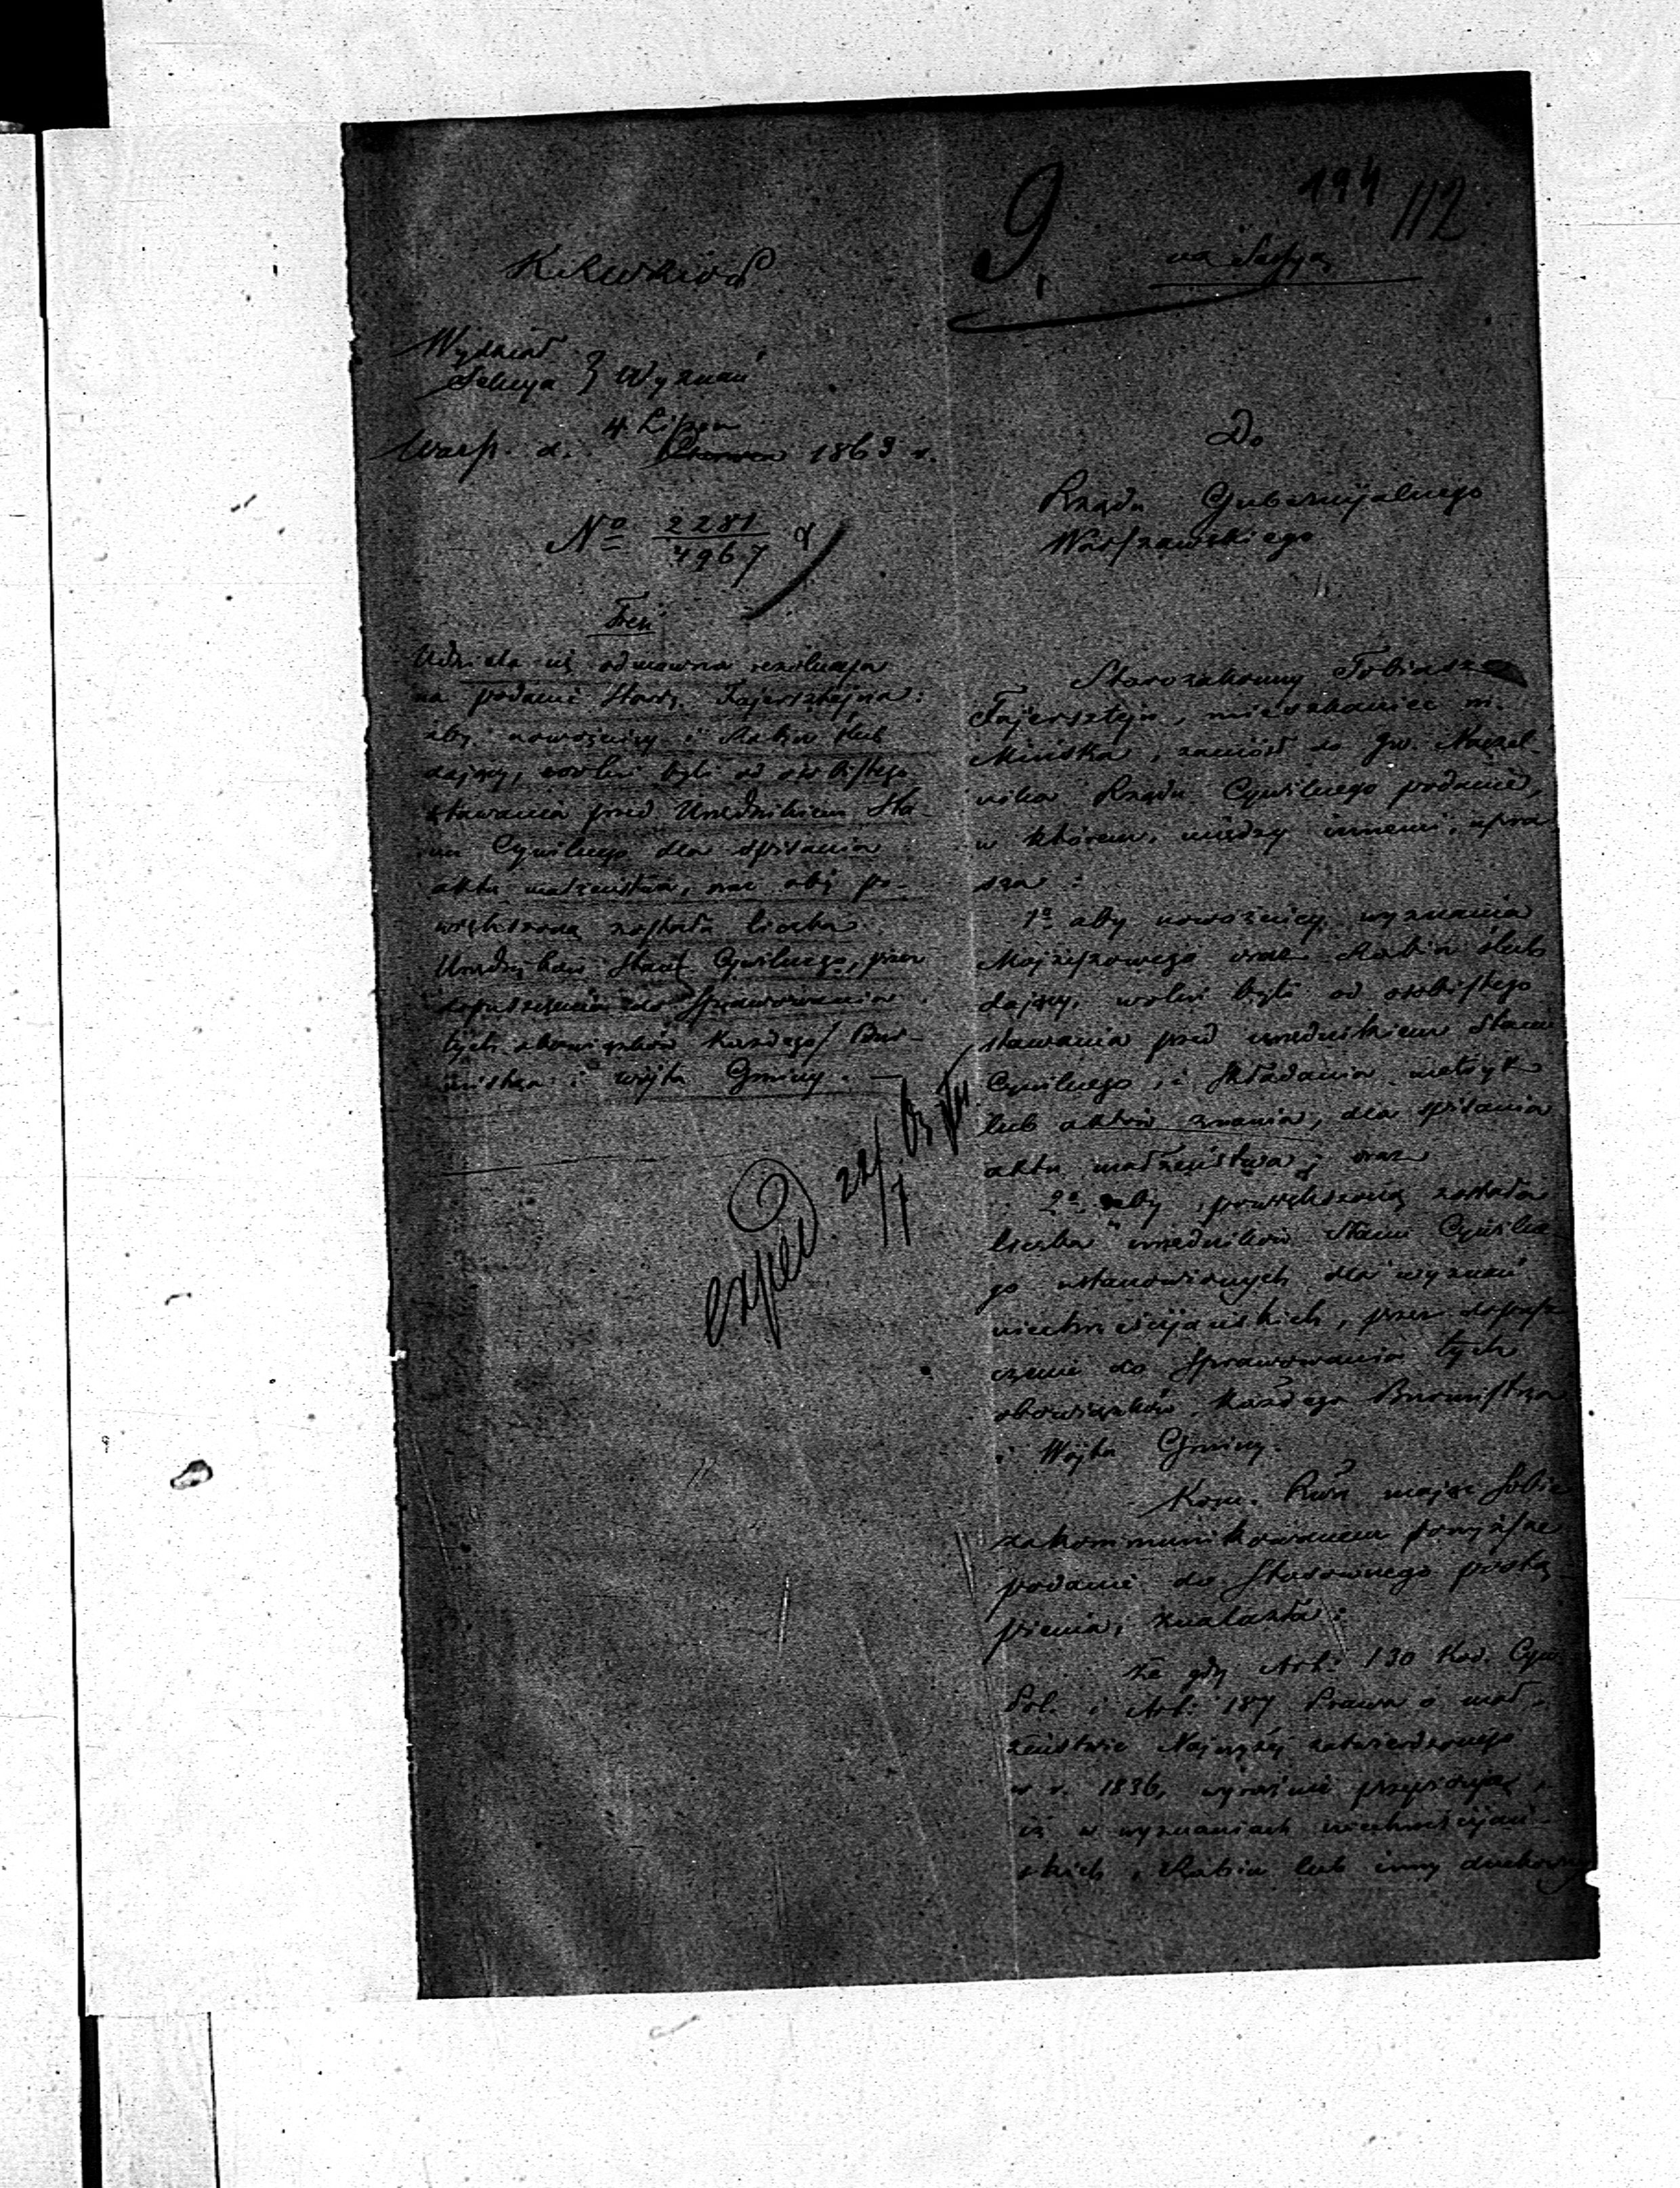 194 112
9.
na Sessyą
K.R.W.R.i O.P.
Wydział
Sekcya } Wyznań
4 Lipca
Warsz. d. Czerwca 1863 r.
No 2281/4967
Treść
Udziela się odmowna rezolucya
na podanie Staroz. Fajersztejna:
aby nowożeńcy i Rabin ślub
dający, wolni byli od osobistego
stawania przed Urzędnikiem Sta-
nu Cywilnego dla spisania
aktu małżeństwa, oraz aby po-
większoną została liczba
Urzędników Stanu Cywilnego, przez
dopuszczenie do sprawowania
tych obowiązków każdego Bur-
mistrza i wójta Gminy. —
exped 22/7 63
Do
Rządu Gubernijalnego
Warszawskiego
Starozakonny Tobiasz
Fajersztejn, mieszkaniec m.
Mińska, zaniósł do Jw. Naczel-
nika Rządu Cywilnego podanie,
w którem, między innemi, upra
sza:
1o aby nowożeńcy wyznania
Mojżeszowego oraz Rabin ślub
dający, wolni byli od osobistego
stawania przed urzędnikiem Stanu
Cywilnego i składania metryk
lub aktów znania, dla spisania
aktu małżeństwa; oraz
2o aby powiększoną została
liczba urzędników Stanu Cywilne
go ustanowionych dla wyznań
niechrześcijańskich, przez dopusz
czenie do sprawowania tych
obowiązków każdego Burmistrza
i Wójta Gminy.
Kom. Rzą. mając sobie
zakommunikowanem powyższe
podanie do stosownego postą
pienia, znalazła:
że gdy Art: 130 Kod. Cyw.
Pol. i Art: 187 Prawa o mał-
żeństwie Najwyżej zatwierdzonego
w r. 1836, wyraźnie przepisują,
iż w wyznaniach niechrześcijań-
skich, Rabin lub inny duchowny